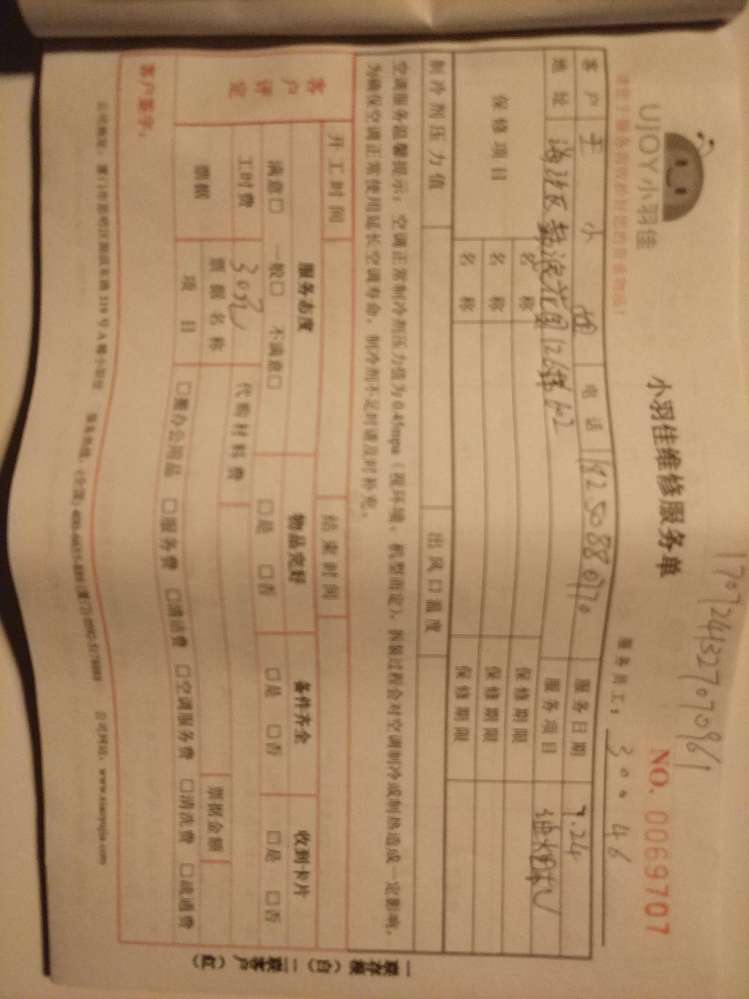 UJOY小羽佳
小羽佳维修服务单
NO. 0069707
服务员工： 30046
客户 王小姐 电话 服务日期 7.24
地址 服务项目 油烟机
保修项目 名称 保修期限
名称 保修期限
名称 保修期限
制冷剂压力值 出风口温度
空调服务温馨提示：空调正常制冷剂压力值为0.45mpa（视环境、机型而定），拆装过程会对空调制冷或制热造成一定影响，
为确保空调正常使用延长空调寿命，制冷剂不足时请及时补充。
开工时间 结束时间
客户评定 服务态度 物品完好 备件齐全 收到卡片
满意□ 一般□ 不满意□ □是 □否 □是 □否 □是 □否
工时费 30元 代购材料费
票据 票据名称 票据金额
项目 □办公用品 □服务费 □清洁费 □空调服务费 □清洗费 □疏通费
客户签字：
319号A栋小羽佳 服务热线： 公司网站：www.xiaoyujia.com
一联存根（白） 二联客户（红）